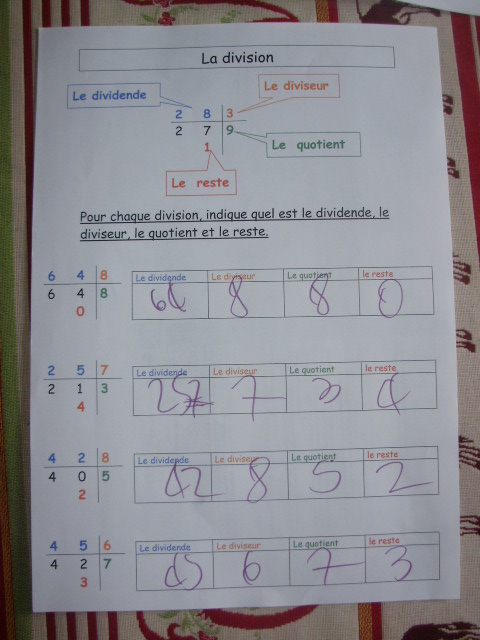 La division
Le dividende
Le diviseur
2 8 3
2 7 9
1
Le quotient
Le reste
Pour chaque division, indique quel est le dividende, le
diviseur, le quotient et le reste.
6 4 8
6 4 8
0
Le dividende Le diviseur Le quotient le reste
64 8 8 0
2 5 7
2 1 3
4
Le dividende Le diviseur Le quotient le reste
25 7 3 4
4 2 8
4 0 5
2
Le dividende Le diviseur Le quotient Le reste
42 8 5 2
4 5 6
4 2 7
3
Le dividende Le diviseur Le quotient le reste
45 6 7 3